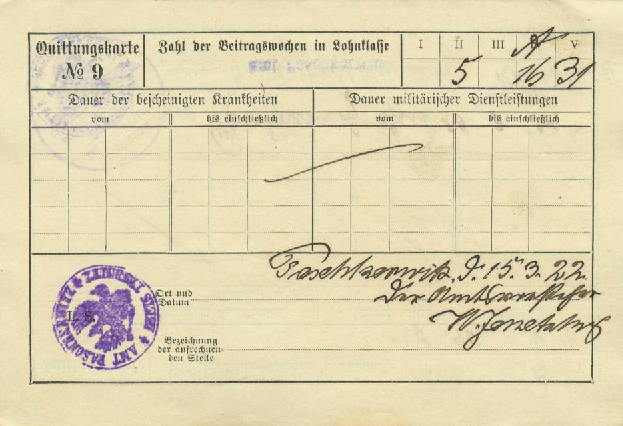 Quittungskarte
№ 9
Zahl der Beitragswochen in Lohnklasse
I II III V
5 16 31
Dauer der bescheinigten Krankheiten
Dauer militärischer Dienstleistungen
vom bis einschließlich vom bis einschließlich
d. 15. 3. 22
Ort und
Datum
Der Amtsvorsteher
L. S.
Bezeichnung
der aufrechnen-
den Stelle